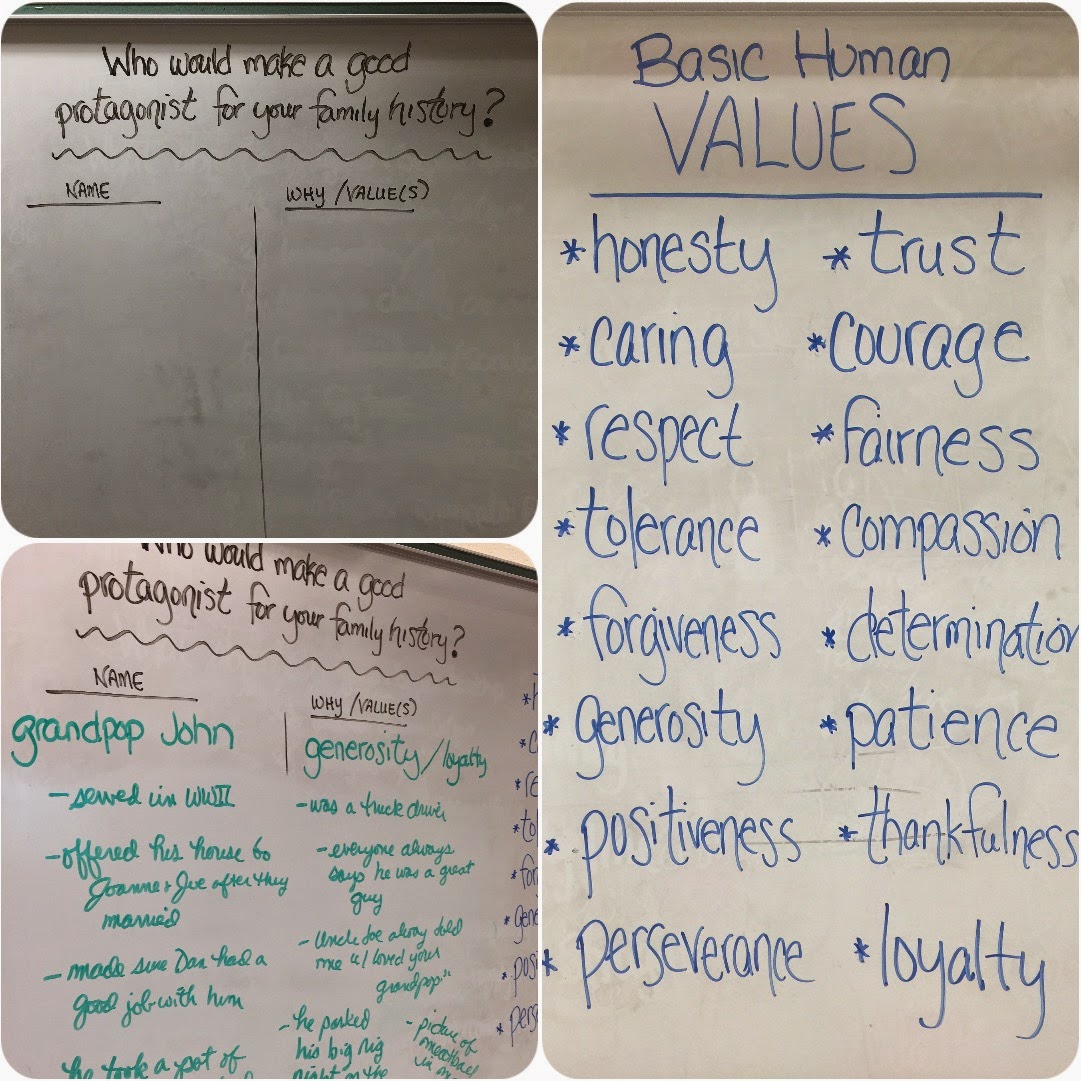 Who would make a good
protagonist for your family history?
NAME
WHY / VALUE(S)
Who would make a good
protagonist for your family history?
NAME
grandpop John
- served in WWII
- offered his house to
Joanne & Joe after they
married
- made sure Dan had a
good job with him
he took a pot of
WHY / VALUE(S)
generosity / loyalty
- was a truck driver
- everyone always
says he was a great
guy
- Uncle Joe always told
me "I loved your
grandpop"
- he parked
his big rig
right on the
- picture of
meatball
in
Basic Human
VALUES
* honesty
* trust
* caring
* courage
* respect
* fairness
* tolerance
* compassion
* forgiveness
* determination
* generosity
* patience
* positiveness
* thankfulness
* perseverance
* loyalty